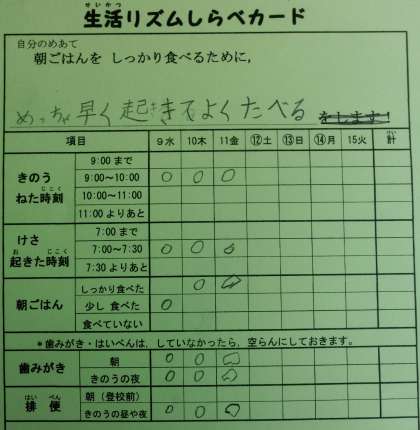 せいかつ
生活リズムしらべカード
自分のめあて
朝ごはんを しっかり食べるために,
めっちゃ早く起きてよくたべる をします!
項目 9水 10木 11金 ⑫土 ⑬日 ⑭月 15火 計
きのう ねた時刻
9:00 まで
9:00～10:00 ○ ○ ○
10:00～11:00
11:00 よりあと
けさ 起きた時刻
7:00 まで
7:00～7:30 ○ ○ ○
7:30 よりあと
朝ごはん
しっかり食べた ○ ○
少し 食べた ○
食べていない
＊歯みがき・はいべんは、していなかったら、空らんにしておきます。
歯みがき
朝 ○ ○ ○
きのうの夜 ○ ○ ○
はい べん
排 便
朝（登校前）
きのうの昼や夜 ○ ○ ○